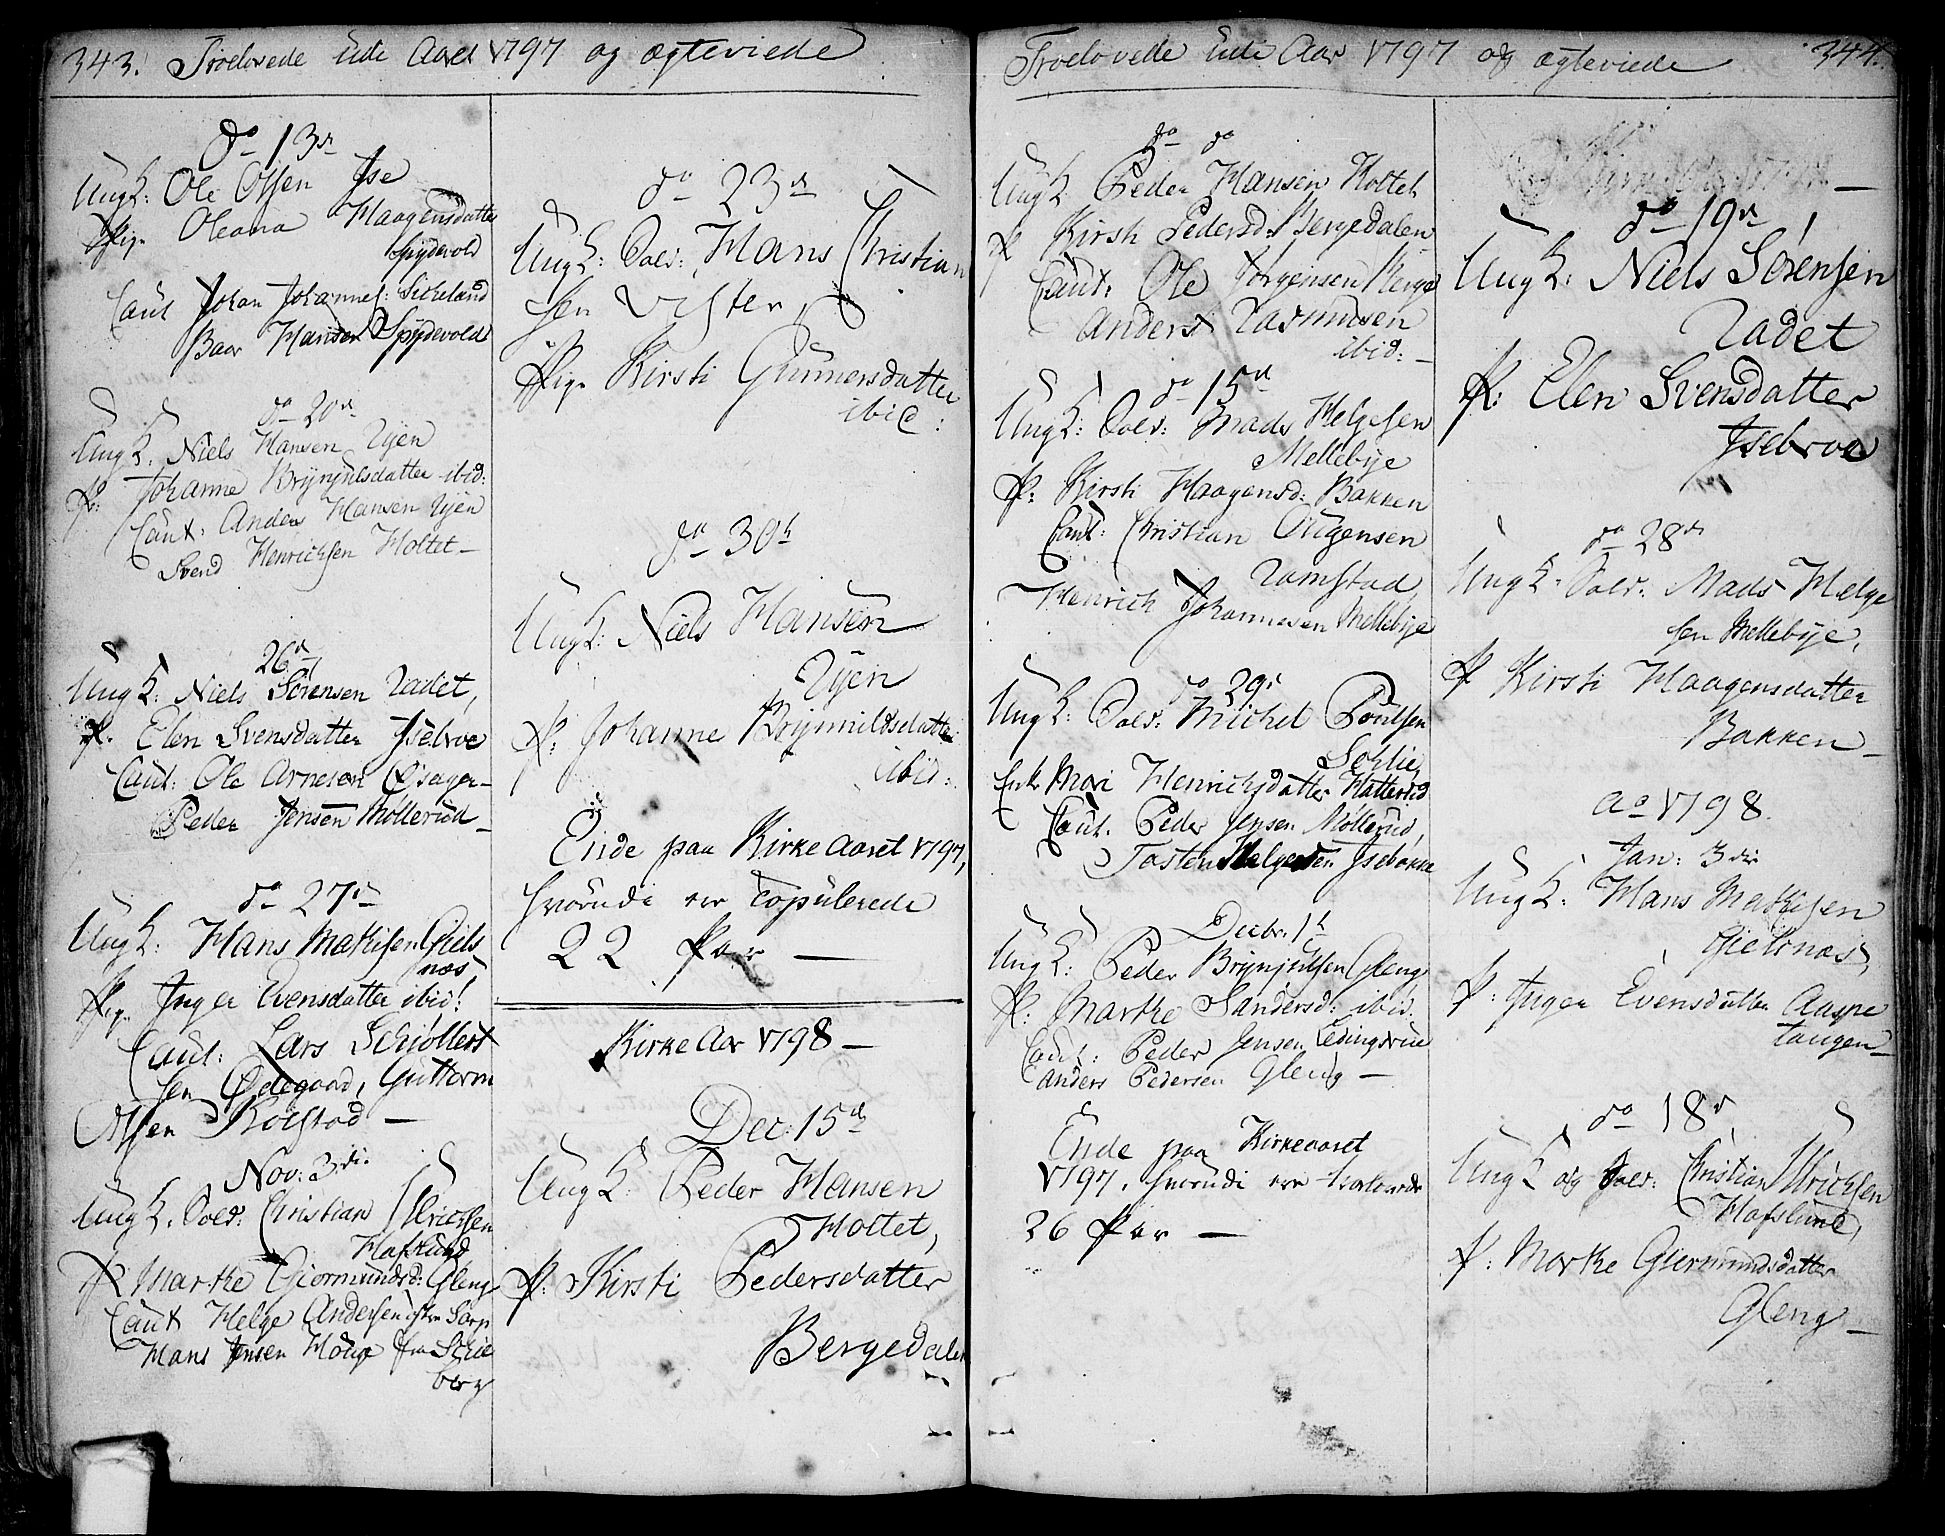 343. Troelovede udi Aaret 1797 og ægteviede
do 13de
Ungk: Ole Olsen Ise
Pige Oleana Haagensdatter
Spydevold
Caut Johan Johannes: Sickeland
Baar Hansen Spydevold
do 20de
Ungk. Niels Hansen Ryen
P: Johanne Brynjulsdatter ibid:
Caut: Anders Hansen Ryen
Svend Henrichsen Holtet
26de
Ungk: Niels Sörensen Radet,
P. Elen Svensdatter Isebroe
Caut: Ole Arnesen
Peder Jensen Möllerud
do 27de
Ungk: Hans Mathisen Giels
næs,
Pige Inger Evensdatter ibid:
Caut: Lars Schiöllert
sen Ødegaard, Guttorm
Olsen Rolstad
Nov: 3die
Ungk. Sold: Christian Ulrichsen
Hafslund
P Marthe Giermundsd: Gleng
Caut Helge Andersen Sarp
Hans Jensen Houge fra Schie
berg
do 23de
Ungk: Sold: Hans Christian
sen Vister
Pige Kirsti Gunnersdatter
ibid:
do 30te
Ungk: Niels Hansen
Ryen
P: Johanne Brynnildsdatter
ibid:
Ende paa Kirke Aaret 1797,
hvorudi ere Copulerede
22 Par
Kirke Aar 1798
Dec: 15de
Ungk: Peder Hansen
Holtet,
P: Kirsti Pedersdatter
Bergedalen
Troelovede udi Aar 1797 og ægteviede 344.
do do
Ungk Peder Hansen Holtet
P Kirsti Pedersd: Bergedalen
Caut: Ole Jörgensen Berge
Anders Rasmusen
ibid:
do 15de
Ungk: Sold: Mads Helgesen
Mellebye
P: Kirsti Haagensd: Bakken
Caut: Christian Augensen
Ramstad,
Henrich Johannesen Mellebye
do 29de
Ungk: Sold: Michel Poulsen
Sohlie,
Enke Mari Henrichsdatter Hatterød
Caut. Peder Jensen Möllerud,
Tosten Helgesen Isebakke
Decbr. 1te
Ungk: Peder Brynjulsen Gleng
P: Marthe Sandersd: ibid.
Caut: Peder Jensen Ledingsrue
Anders Pedersen Gleng
Ende paa Kirkeaaret
1797, hvorudi ere troelovede
26 Par
do 19de
Ungk: Niels Sörensen
Radet
P: Elen Svensdatter
Isebroe
do 28de
Ungk: Sold: Mads Helge
sen Mellebye,
P Kirsti Haagensdatter
Bakken
Ao 1798.
Jan: 3die
Ungk: Hans Mathisen
Gielsnæs,
P: Inger Evensdatter Aaspe
tangen
do 18de
Ungk og Sold: Christian Ulrichsen
Hafslund,
P: Marthe Giermundsdatter
Gleng